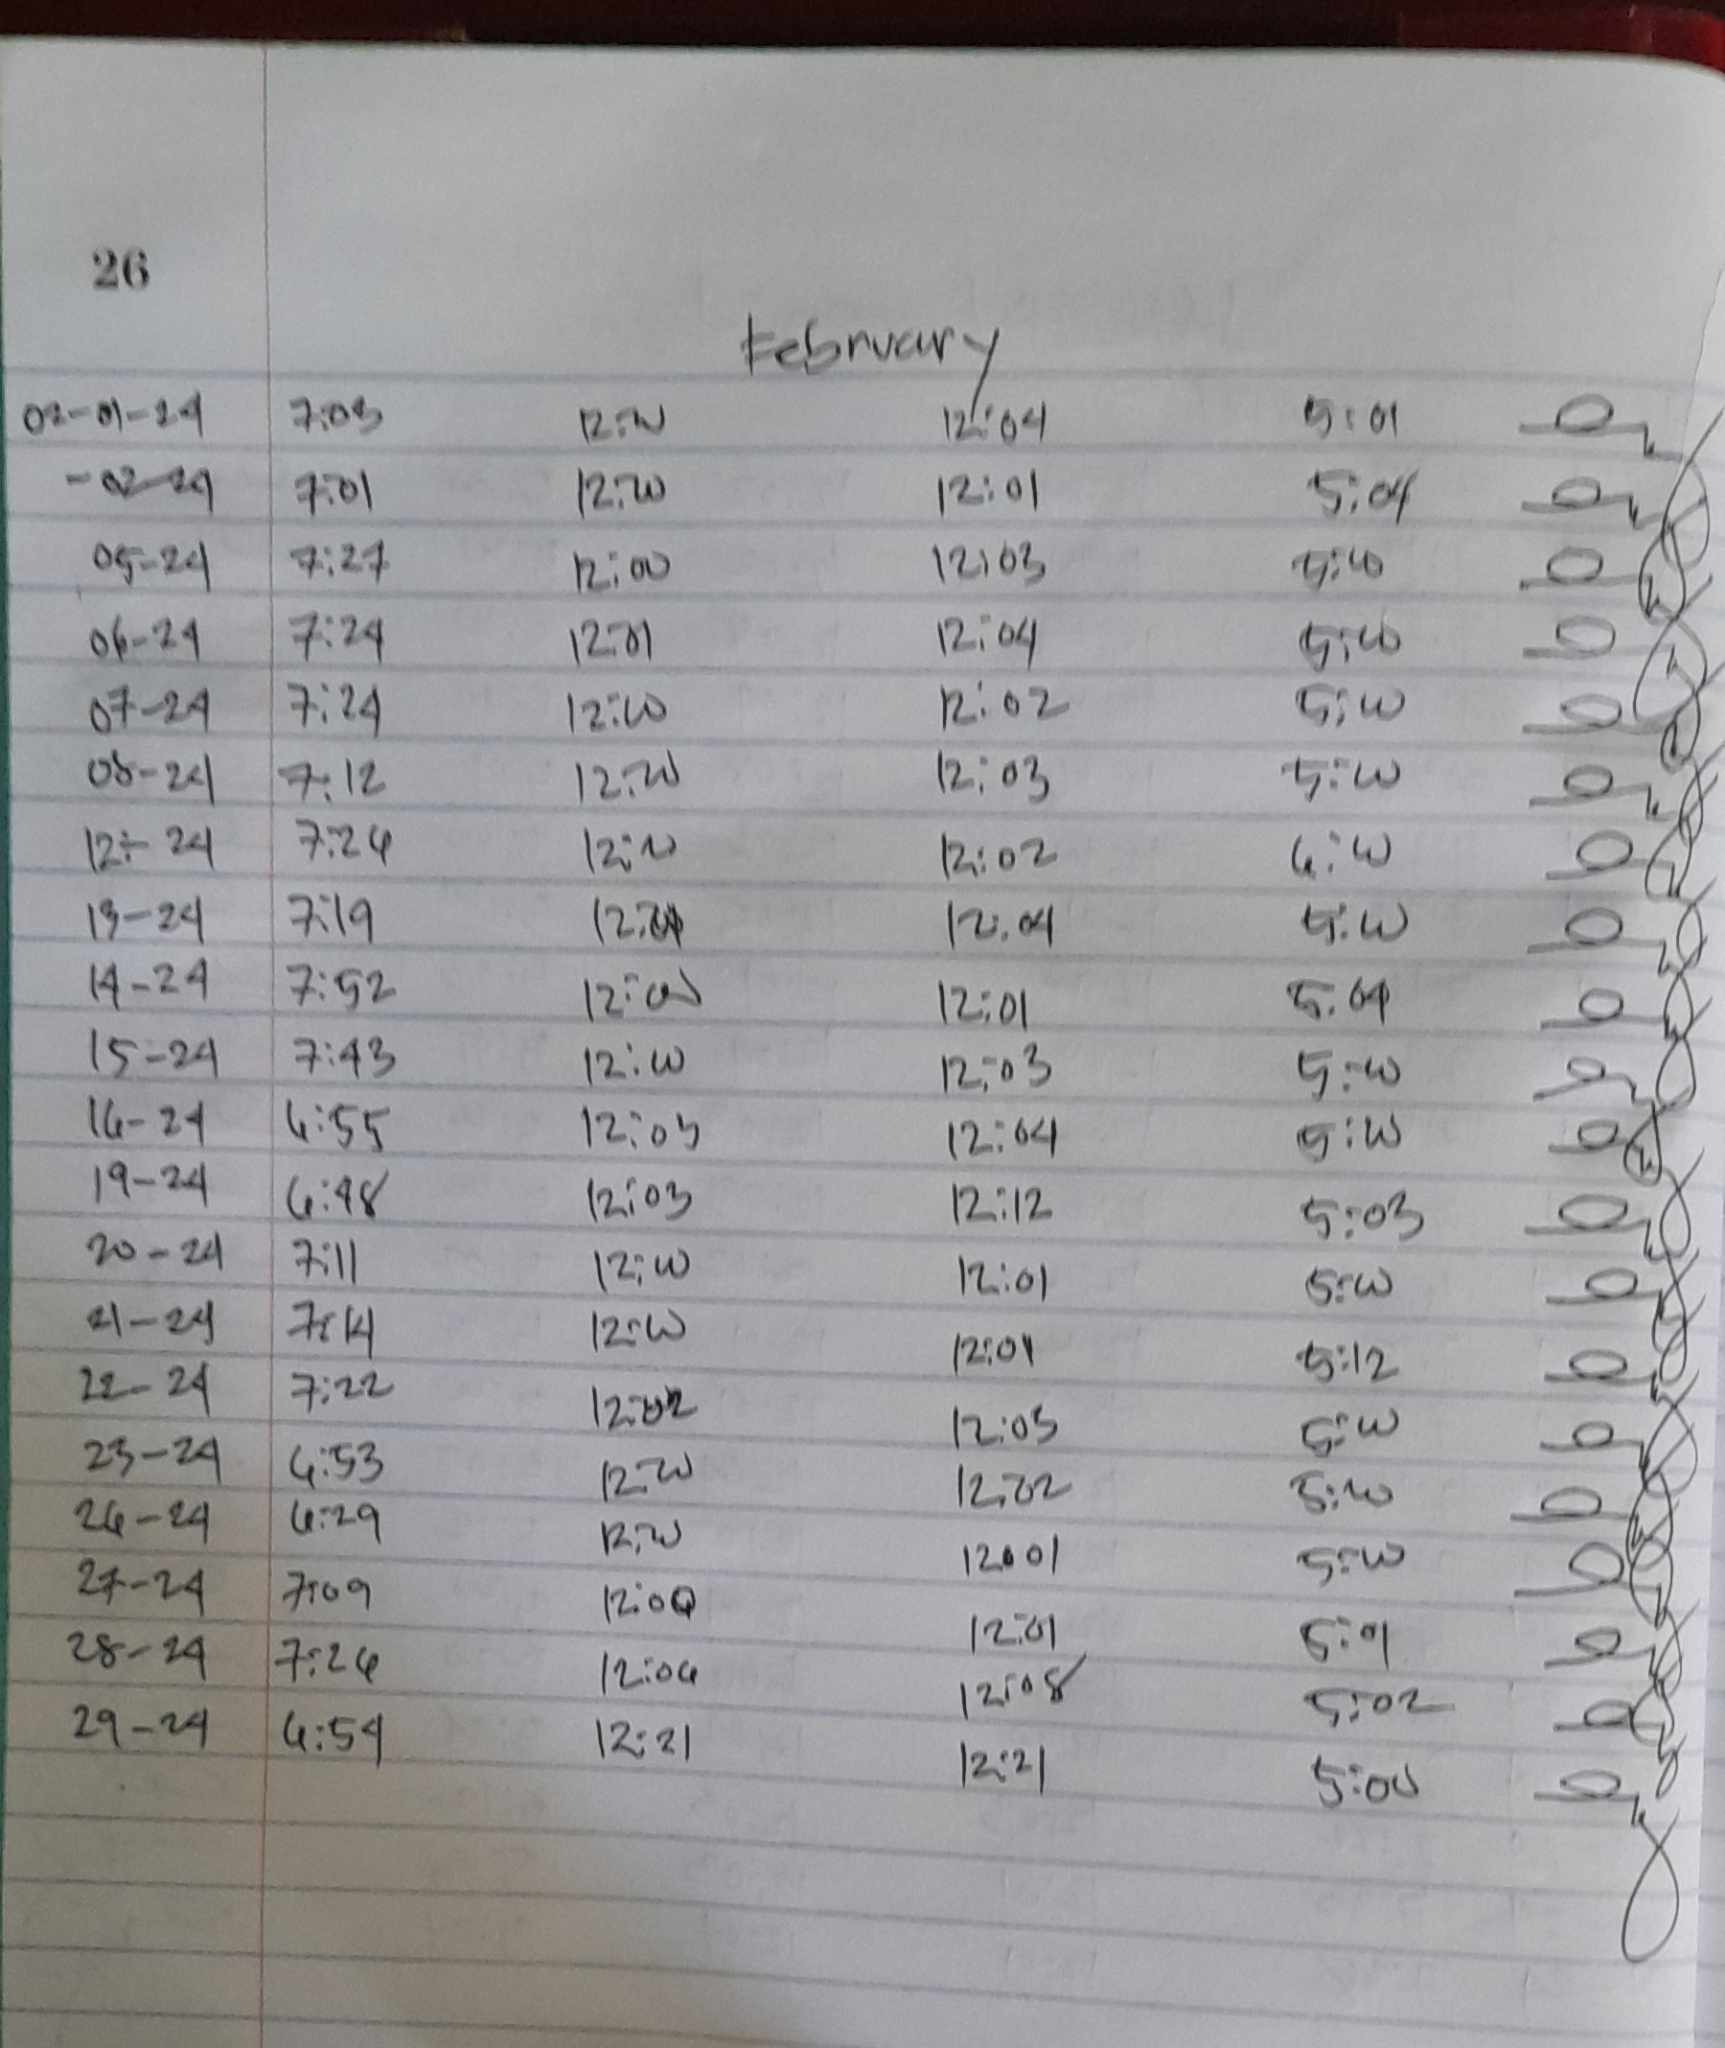 26
February
02-01-24 7:03 12:00 12:04 5:01
-02-24 7:01 12:00 12:01 5:04
05-24 7:27 12:00 12:03 5:00
06-24 7:24 12:01 12:04 5:00
07-24 7:24 12:00 12:02 5:00
08-24 7:12 12:00 12:03 5:00
12-24 7:26 12:00 12:02 6:00
13-24 7:19 12:04 5:00
14-24 7:52 12:00 12:01 5:04
15-24 7:43 12:00 12:03 5:00
16-24 6:55 12:03 12:04 5:00
19-24 6:48 12:03 12:12 5:03
20-24 7:11 12:00 12:01 5:00
21-24 7:14 12:00 12:01 5:12
22-24 7:22 12:02 12:03 5:00
23-24 6:53 12:00 12:02 5:00
26-24 6:29 12:00 12:01 5:00
27-24 7:09 12:00 12:01 5:01
28-24 7:26 12:06 12:08 5:02
29-24 6:54 12:21 12:21 5:00